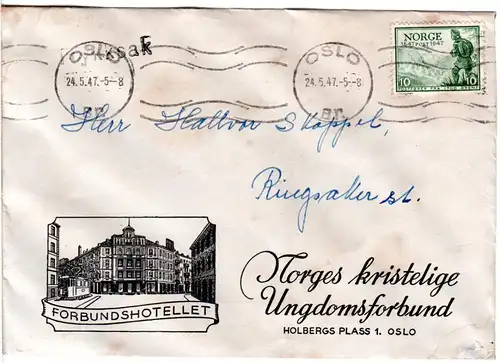 OSLO
Trysak
24.5.47.-5-8
BR.
OSLO
24.5.47.-5-8
BR.
NORGE
1647 POST 1947
10 10
Herr Hallvor Skappel,
Ringsaker st.
FORBUNDSHOTELLET
Norges kristelige
Ungdomsforbund
HOLBERGS PLASS 1. OSLO